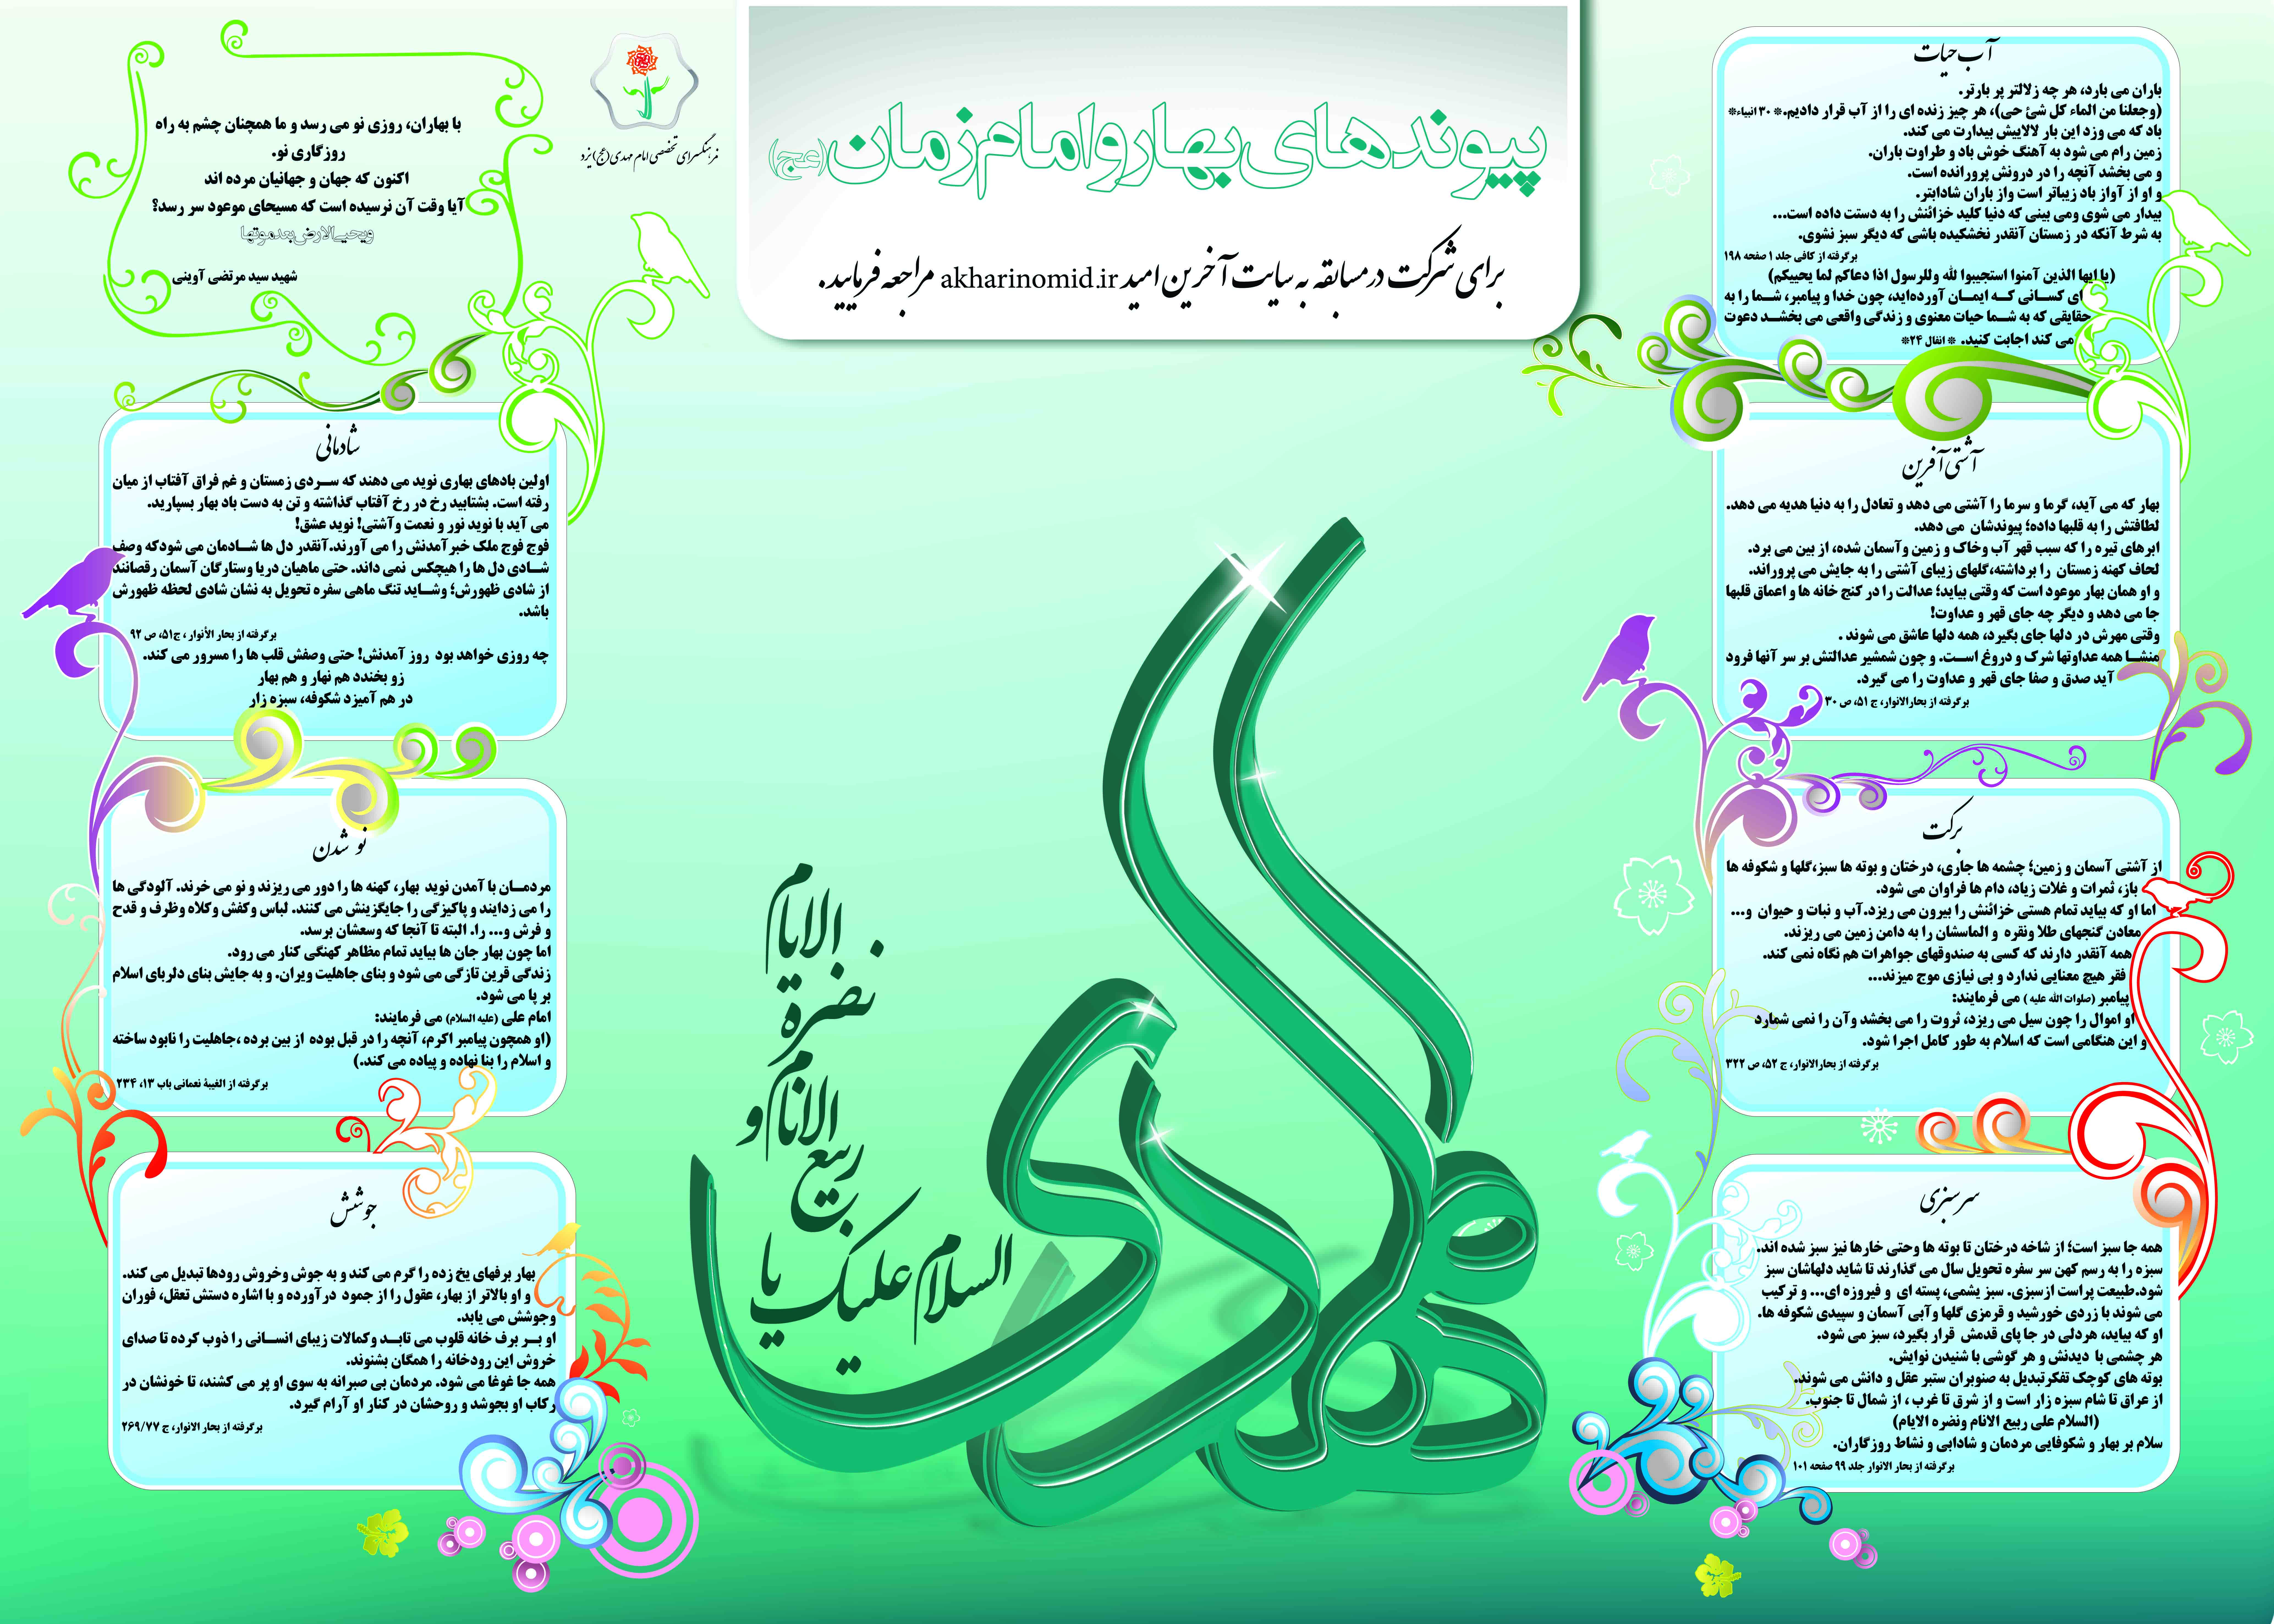 پیوندهای بهار و امام زمان (عج)
برای شرکت در مسابقه به سایت آخرین امید akharinomid.ir مراجعه فرمایید.
آب حیات
باران می بارد، هر چه زلالتر پر بارتر.
(وجعلنا من الماء کل شئ حی)، هر چیز زنده ای را از آب قرار دادیم.* ۳۰ انبیاء*
باد که می وزد این بار لالاییش بیدارت می کند.
زمین رام می شود به آهنگ خوش باد و طراوت باران.
و می بخشد آنچه را در درونش پرورانده است.
و او از آواز باد زیباتر است واز باران شادابتر.
بیدار می شوی ومی بینی که دنیا کلید خزائنش را به دستت داده است...
به شرط آنکه در زمستان آنقدر نخشکیده باشی که دیگر سبز نشوی.
برگرفته از کافی جلد ۱ صفحه ۱۹۸
(یا ایها الذین آمنوا استجیبوا لله وللرسول اذا دعاکم لما یحییکم)
ای کسانی که ایمان آورده‌اید، چون خدا و پیامبر، شما را به
حقایقی که به شما حیات معنوی و زندگی واقعی می بخشد دعوت
می کند اجابت کنید. * انفال ۲۴*
آشتی آفرین
بهار که می آید، گرما و سرما را آشتی می دهد و تعادل را به دنیا هدیه می دهد.
لطافتش را به قلبها داده؛ پیوندشان می دهد.
ابرهای تیره را که سبب قهر آب وخاک و زمین وآسمان شده، از بین می برد.
لحاف کهنه زمستان را برداشته،گلهای زیبای آشتی را به جایش می پروراند.
و او همان بهار موعود است که وقتی بیاید؛ عدالت را در کنج خانه ها و اعماق قلبها
جا می دهد و دیگر چه جای قهر و عداوت!
وقتی مهرش در دلها جای بگیرد، همه دلها عاشق می شوند .
منشا همه عداوتها شرک و دروغ است. و چون شمشیر عدالتش بر سر آنها فرود
آید صدق و صفا جای قهر و عداوت را می گیرد.
برگرفته از بحارالانوار، ج ۵۱، ص ۳۰
برکت
از آشتی آسمان و زمین؛ چشمه ها جاری، درختان و بوته ها سبز،گلها و شکوفه ها
باز، ثمرات و غلات زیاد، دام ها فراوان می شود.
اما او که بیاید تمام هستی خزائنش را بیرون می ریزد.آب و نبات و حیوان و...
معادن گنجهای طلا ونقره و الماسشان را به دامن زمین می ریزند.
همه آنقدر دارند که کسی به صندوقهای جواهرات هم نگاه نمی کند.
فقر هیچ معنایی ندارد و بی نیازی موج میزند...
پیامبر (صلوات الله علیه ) می فرمایند:
او اموال را چون سیل می ریزد، ثروت را می بخشد وآن را نمی شمارد
و این هنگامی است که اسلام به طور کامل اجرا شود.
برگرفته از بحارالانوار، ج ۵۲، ص ۳۲۲
سرسبزی
همه جا سبز است؛ از شاخه درختان تا بوته ها وحتی خارها نیز سبز شده اند.
سبزه را به رسم کهن سر سفره تحویل سال می گذارند تا شاید دلهاشان سبز
شود.طبیعت پراست ازسبزی. سبز یشمی، پسته ای و فیروزه ای... و ترکیب
می شوند با زردی خورشید و قرمزی گلها وآبی آسمان و سپیدی شکوفه ها.
او که بیاید، هردلی در جا پای قدمش قرار بگیرد، سبز می شود.
هر چشمی با دیدنش و هر گوشی با شنیدن نوایش.
بوته های کوچک تفکرتبدیل به صنوبران ستبر عقل و دانش می شوند.
از عراق تا شام سبزه زار است و از شرق تا غرب ، از شمال تا جنوب.
(السلام علی ربیع الانام ونضره الایام)
سلام بر بهار و شکوفایی مردمان و شادابی و نشاط روزگاران.
برگرفته از بحار الانوار جلد ۹۹ صفحه ۱۰۱
مهدی
السلام علیک یا
ربیع
الانام و
نضرة
الایام
فرهنگسرای تخصصی امام مهدی (عج) یزد
با بهاران، روزی نو می رسد و ما همچنان چشم به راه
روزگاری نو.
اکنون که جهان و جهانیان مرده اند
آیا وقت آن نرسیده است که مسیحای موعود سر رسد؟
ویحیی الارض بعد موتها
شهید سید مرتضی آوینی
شادمانی
اولین بادهای بهاری نوید می دهند که سردی زمستان و غم فراق آفتاب از میان
رفته است. بشتابید رخ در رخ آفتاب گذاشته و تن به دست باد بهار بسپارید.
می آید با نوید نور و نعمت وآشتی! نوید عشق!
فوج فوج ملک خبرآمدنش را می آورند.آنقدر دل ها شادمان می شودکه وصف
شادی دل ها را هیچکس نمی داند. حتی ماهیان دریا وستارگان آسمان رقصانند
از شادی ظهورش؛ وشاید تنگ ماهی سفره تحویل به نشان شادی لحظه ظهورش
باشد.
برگرفته از بحار الأنوار ، ج۵۱، ص ۹۲
چه روزی خواهد بود روز آمدنش! حتی وصفش قلب ها را مسرور می کند.
زو بخندد هم نهار و هم بهار
در هم آمیزد شکوفه، سبزه زار
نو شدن
مردمان با آمدن نوید بهار، کهنه ها را دور می ریزند و نو می خرند. آلودگی ها
را می زدایند و پاکیزگی را جایگزینش می کنند. لباس وکفش وکلاه وظرف و قدح
و فرش و... را. البته تا آنجا که وسعشان برسد.
اما چون بهار جان ها بیاید تمام مظاهر کهنگی کنار می رود.
زندگی قرین تازگی می شود و بنای جاهلیت ویران. و به جایش بنای دلربای اسلام
بر پا می شود.
امام علی (علیه السلام) می فرمایند:
(او همچون پیامبر اکرم، آنچه را در قبل بوده از بین برده ،جاهلیت را نابود ساخته
و اسلام را بنا نهاده و پیاده می کند.)
برگرفته از الغیبة نعمانی باب ۱۳، ۲۳۴
جوشش
بهار برفهای یخ زده را گرم می کند و به جوش وخروش رودها تبدیل می کند.
و او بالاتر از بهار، عقول را از جمود درآورده و با اشاره دستش تعقل، فوران
وجوشش می یابد.
او بر برف خانه قلوب می تابد وکمالات زیبای انسانی را ذوب کرده تا صدای
خروش این رودخانه را همگان بشنوند.
همه جا غوغا می شود. مردمان بی صبرانه به سوی او پر می کشند، تا خونشان در
رکاب او بجوشد و روحشان در کنار او آرام گیرد.
برگرفته از بحار الانوار، ج ۲۶۹/۷۷